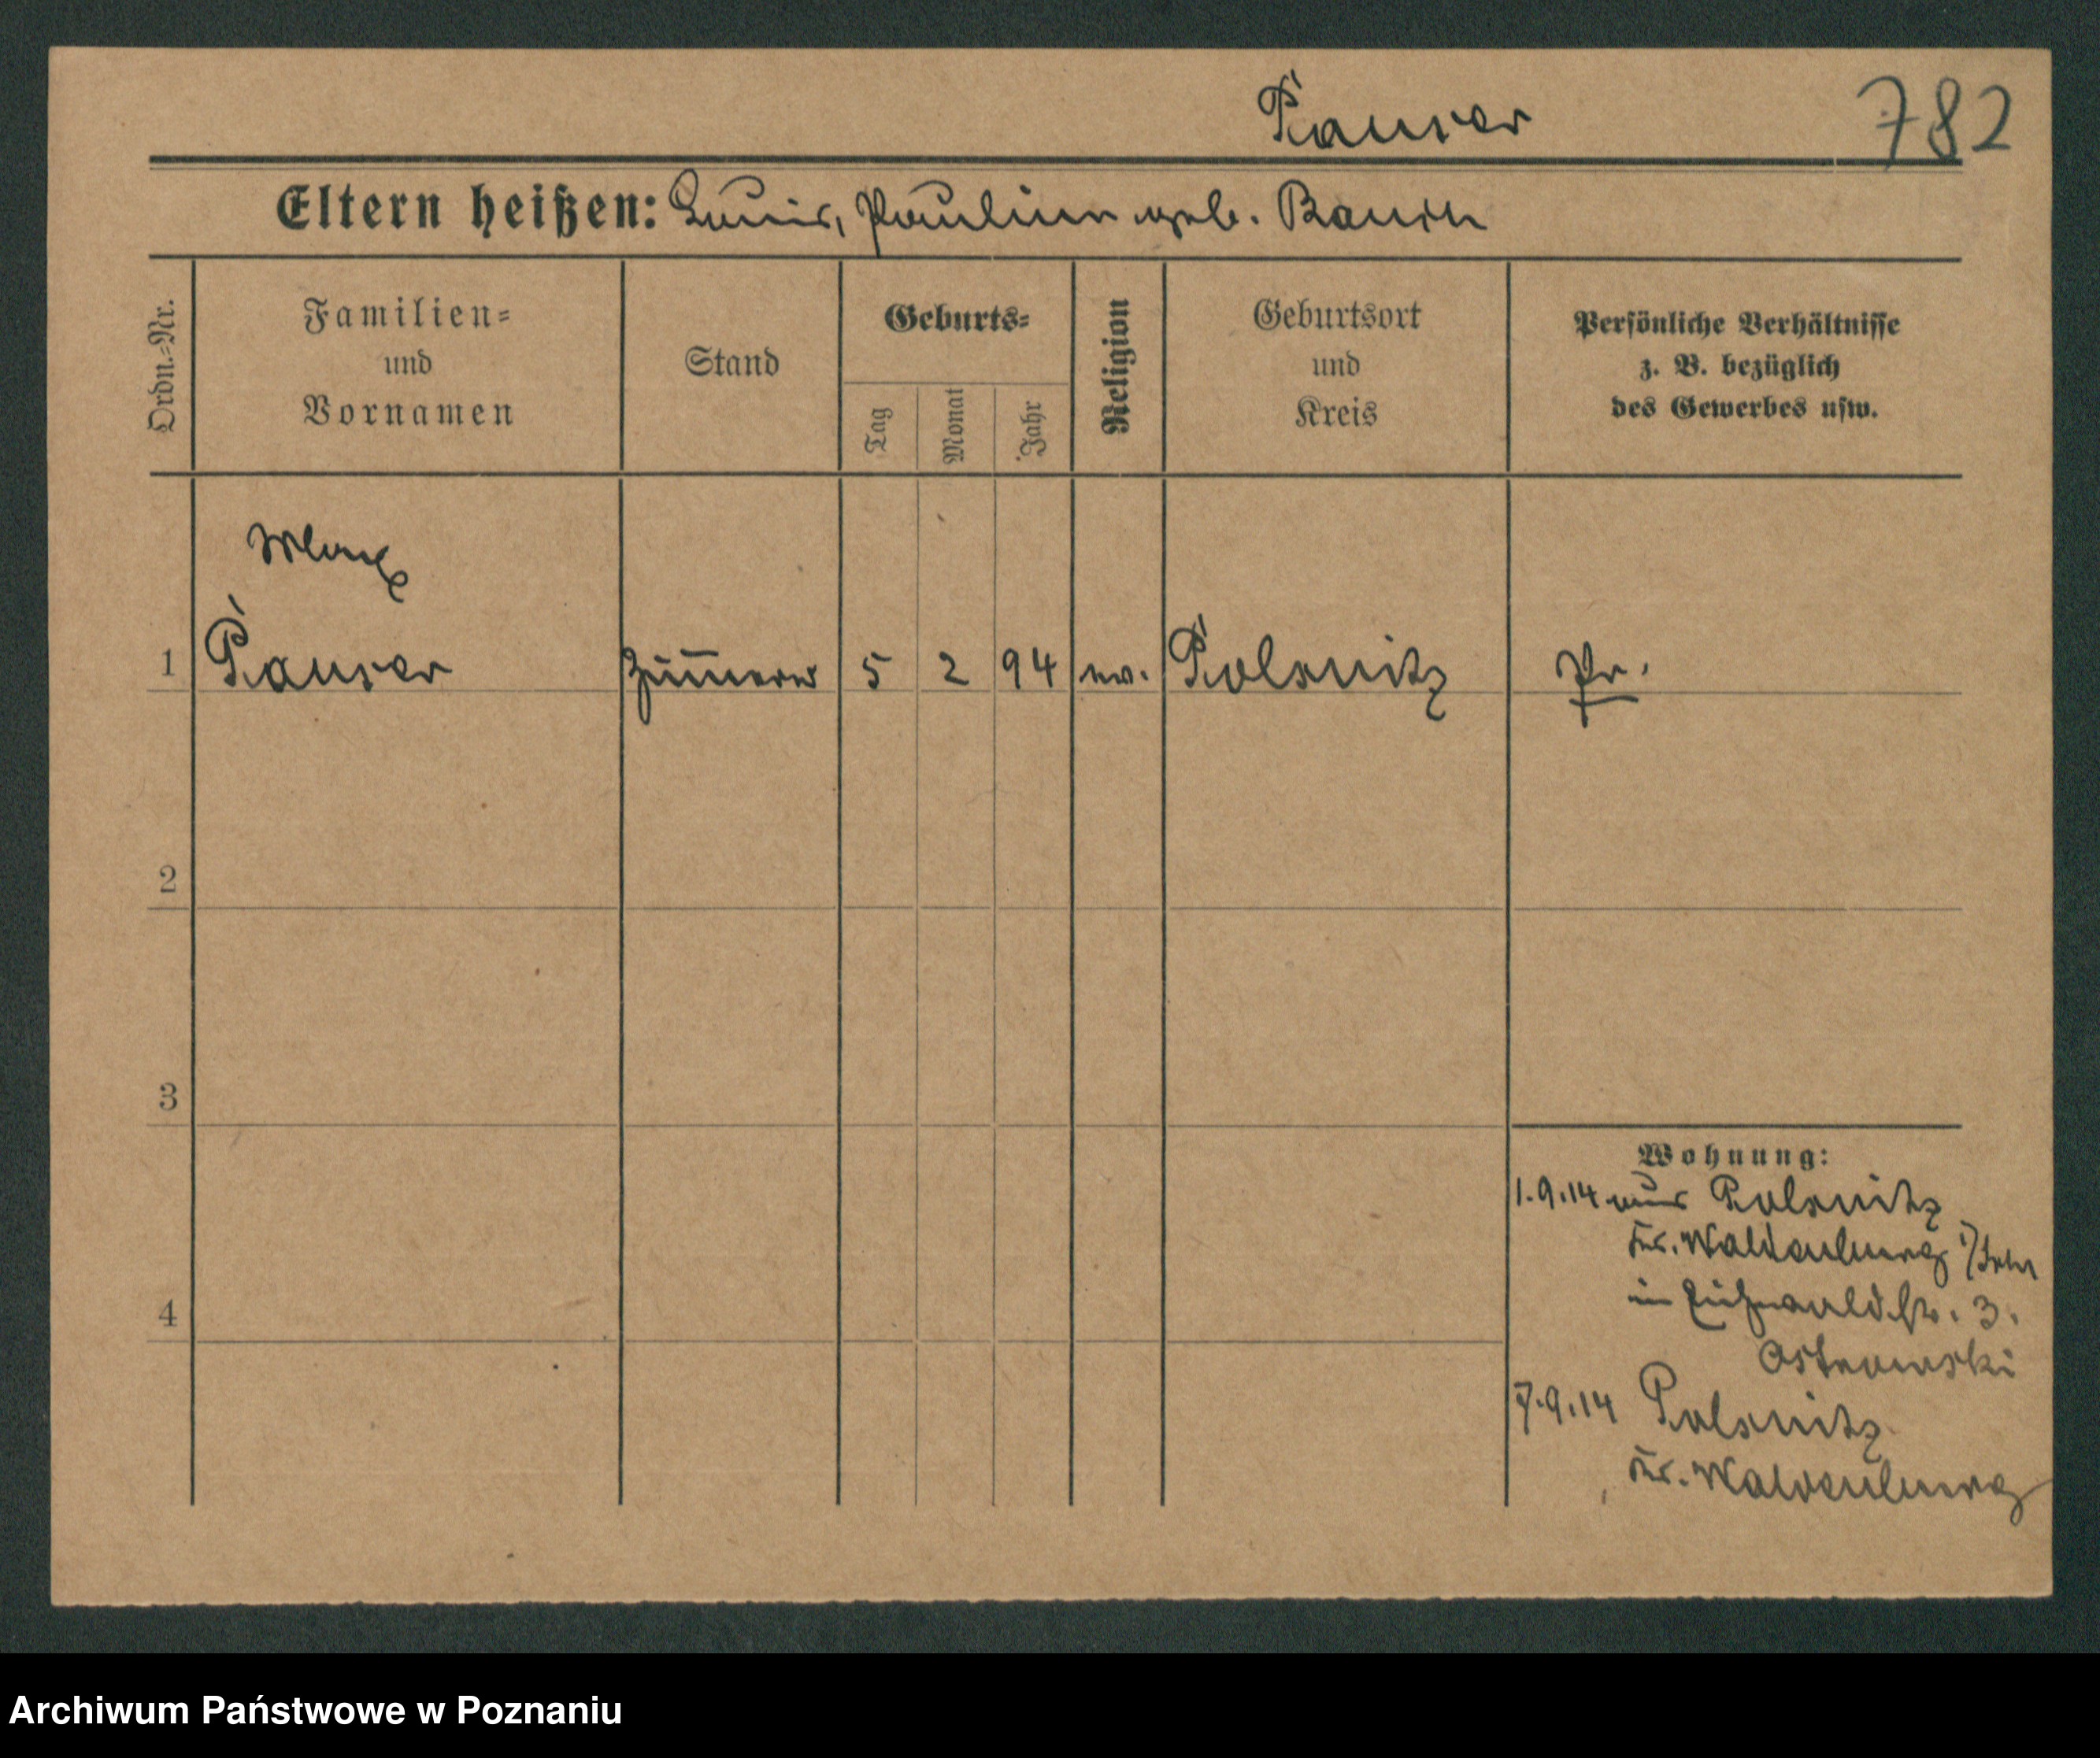 Pauser
782
Eltern heißen: Louis, Pauline geb.
Ordn.=Nr.
Familien=
und
Vornamen
Stand
Geburts=
Tag
Monat
Jahr
Religion
Geburtsort
und
Kreis
Persönliche Verhältnisse
z. B. bezüglich
des Gewerbes usw.
Max
1 Pauser 5 2 94 ev. Polsnitz Pr.
2
3
4
Wohnung:
1.9.14 aus Polsnitz
Kr. Waldenburg i/Schl
in Eichwaldstr. 3.
Ostrowski
7.9.14 Polsnitz
Kr. Waldenburg
Archiwum Państwowe w Poznaniu